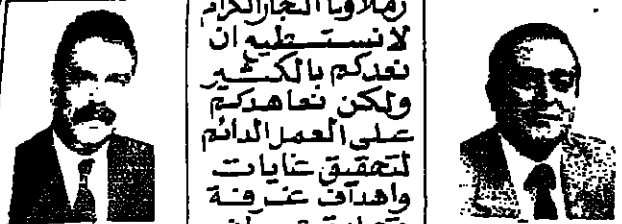 زملاؤنا التجار الكرام
لا نستطيع ان
نعدكم بالكثير
ولكن نعاهدكم
على العمل الدائم
لتحقيق غايات
واهداف غرفة